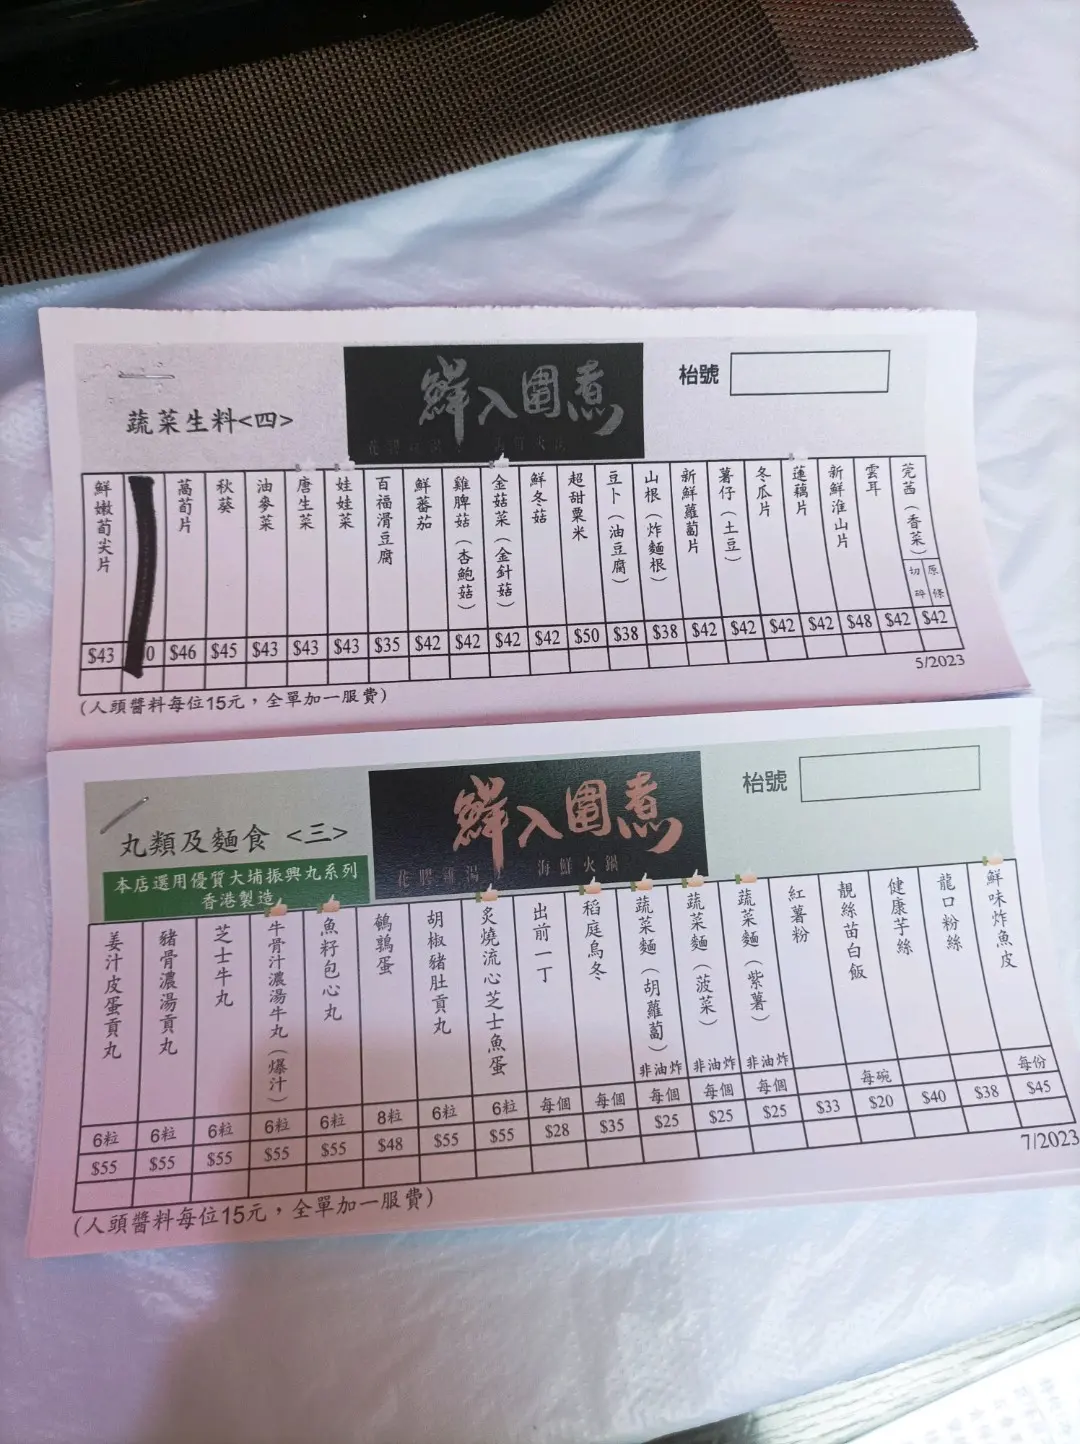 蔬菜生料<四>
鮮入圍煮
枱號
鮮嫩荀尖片
萵荀片
秋葵
油麥菜
唐生菜
娃娃菜
百福滑豆腐
鮮蕃茄
雞脾菇（杏鮑菇）
金菇菜（金針菇）
鮮冬菇
超甜粟米
豆卜（油豆腐）
山根（炸麵根）
新鮮蘿蔔片
薯仔（土豆）
冬瓜片
蓮藕片
新鮮淮山片
雲耳
芫茜（香菜）
切碎
原條
$43 0 $46 $45 $43 $43 $43 $35 $42 $42 $42 $42 $50 $38 $38 $42 $42 $42 $42 $48 $42 $42
5/2023
(人頭醬料每位15元，全單加一服費)
丸類及麵食 <三>
本店選用優質大埔振興丸系列
香港製造
鮮入圍煮
花膠雞湯 海鮮火鍋
枱號
姜汁皮蛋貢丸
豬骨濃湯貢丸
芝士牛丸
牛骨汁濃湯牛丸（爆汁）
魚籽包心丸
鵪鶉蛋
胡椒豬肚貢丸
炙燒流心芝士魚蛋
出前一丁
稻庭烏冬
蔬菜麵（胡蘿蔔）
非油炸
蔬菜麵（菠菜）
非油炸
蔬菜麵（紫薯）
非油炸
紅薯粉
靚絲苗白飯
健康芋絲
龍口粉絲
鮮味炸魚皮
6粒 6粒 6粒 6粒 6粒 8粒 6粒 6粒 每個 每個 每個 每個 每個 每碗 每份
$55 $55 $55 $55 $55 $48 $55 $55 $28 $35 $25 $25 $25 $33 $20 $40 $38 $45
7/2023
(人頭醬料每位15元，全單加一服費)